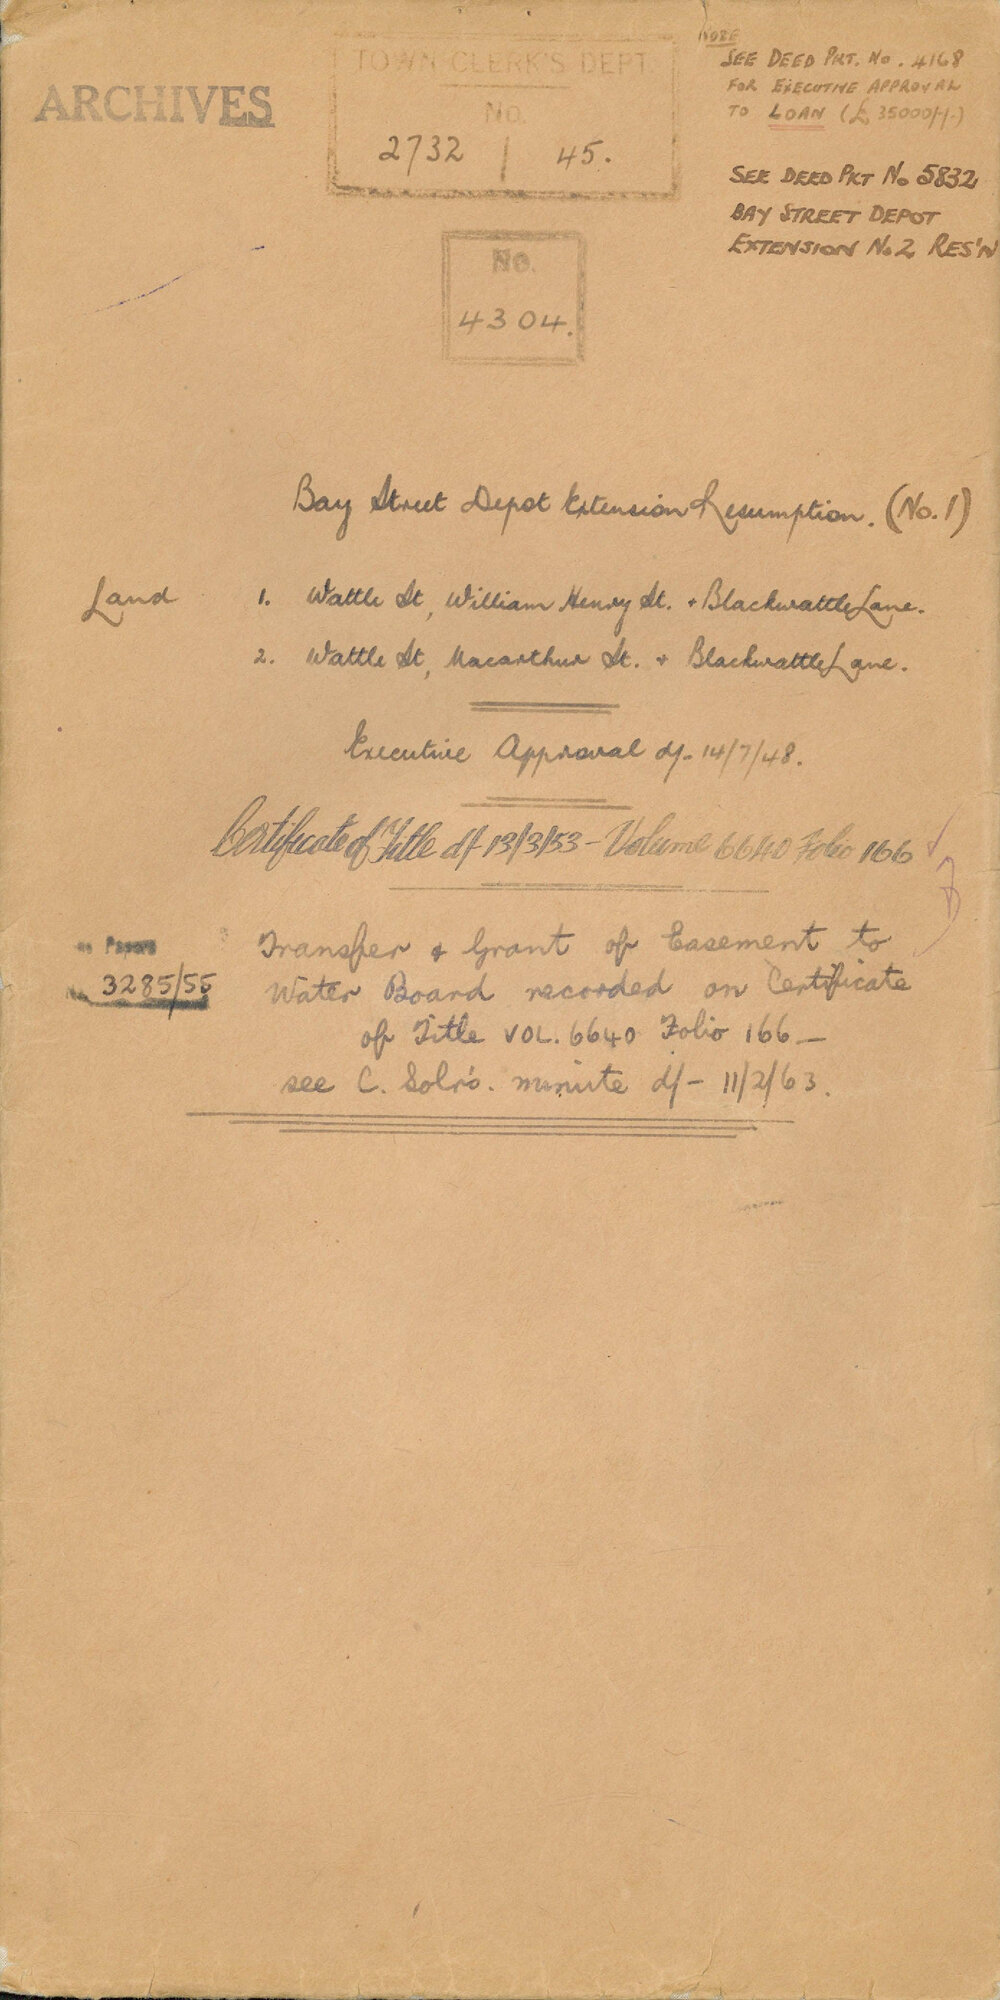 ARCHIVES
TOWN CLERK'S DEPT
No.
2732 | 45.
NOTE
SEE DEED PKT. No. 4168
FOR EXECUTIVE APPROVAL
TO LOAN (£35000/-/-)
SEE DEED PKT No 5832
BAY STREET DEPOT
EXTENSION No.2 RES'N
No.
4304.
Bay Street Depot Extension Resumption. (No. 1)
Land 1. Wattle St, William Henry St. + Blackwattle Lane.
2. Wattle St, Macarthur St. + Blackwattle Lane.
Executive Approval d/- 14/7/48.
Certificate of Title d/- 13/3/53 - Volume 6640 Folio 166
Papers
3285/55
Transfer & Grant of Easement to
Water Board recorded on Certificate
of Title VOL. 6640 Folio 166 —
see C. Solr's. minute d/- 11/2/63.